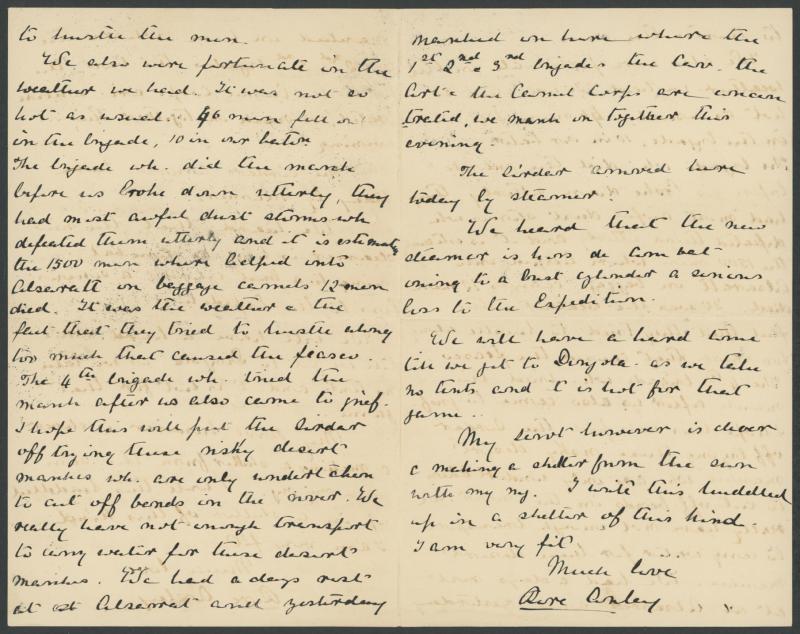 to hustle the men.
We also were fortunate in the
weather we had. It was not so
hot as usual. 46 men fell
in the brigade, 10 in our battn.
The brigade wh. did the march
before us broke down utterly, they
had most awful dust storms wh
defeated them utterly and it is estimated
the 1500 men where helped into
Absarratt on baggage camels 12 men
died. It was the weather & the
fact that they tried to hustle along
too much that caused the fiasco.
The 4th brigade wh. tried the
march after us also came to grief.
I hope this will put the Sirdar
off trying these risky desert
marches wh. are only undertaken
to cut off bends in the river. We
really have not enough transport
to carry water for these desert
marches. We had a days rest
at Absarrat and yesterday
marched on here where the
1st 2nd & 3rd brigades the Cav. the
Art & the Camel Corps are concen
trated, we march on together this
evening.
The Sirdar arrived here
today by steamer.
We heard that the new
steamer is hors de combat
owing to a bust cylinder a serious
loss to the Expedition.
We will have a hard time
till we get to Dongola. as we take
no tents and t is hot for that
game.
My servt however is clever
a making a shelter from the sun
with my rug. I write this huddled
up in a shelter of this kind.
I am very fit
Much love